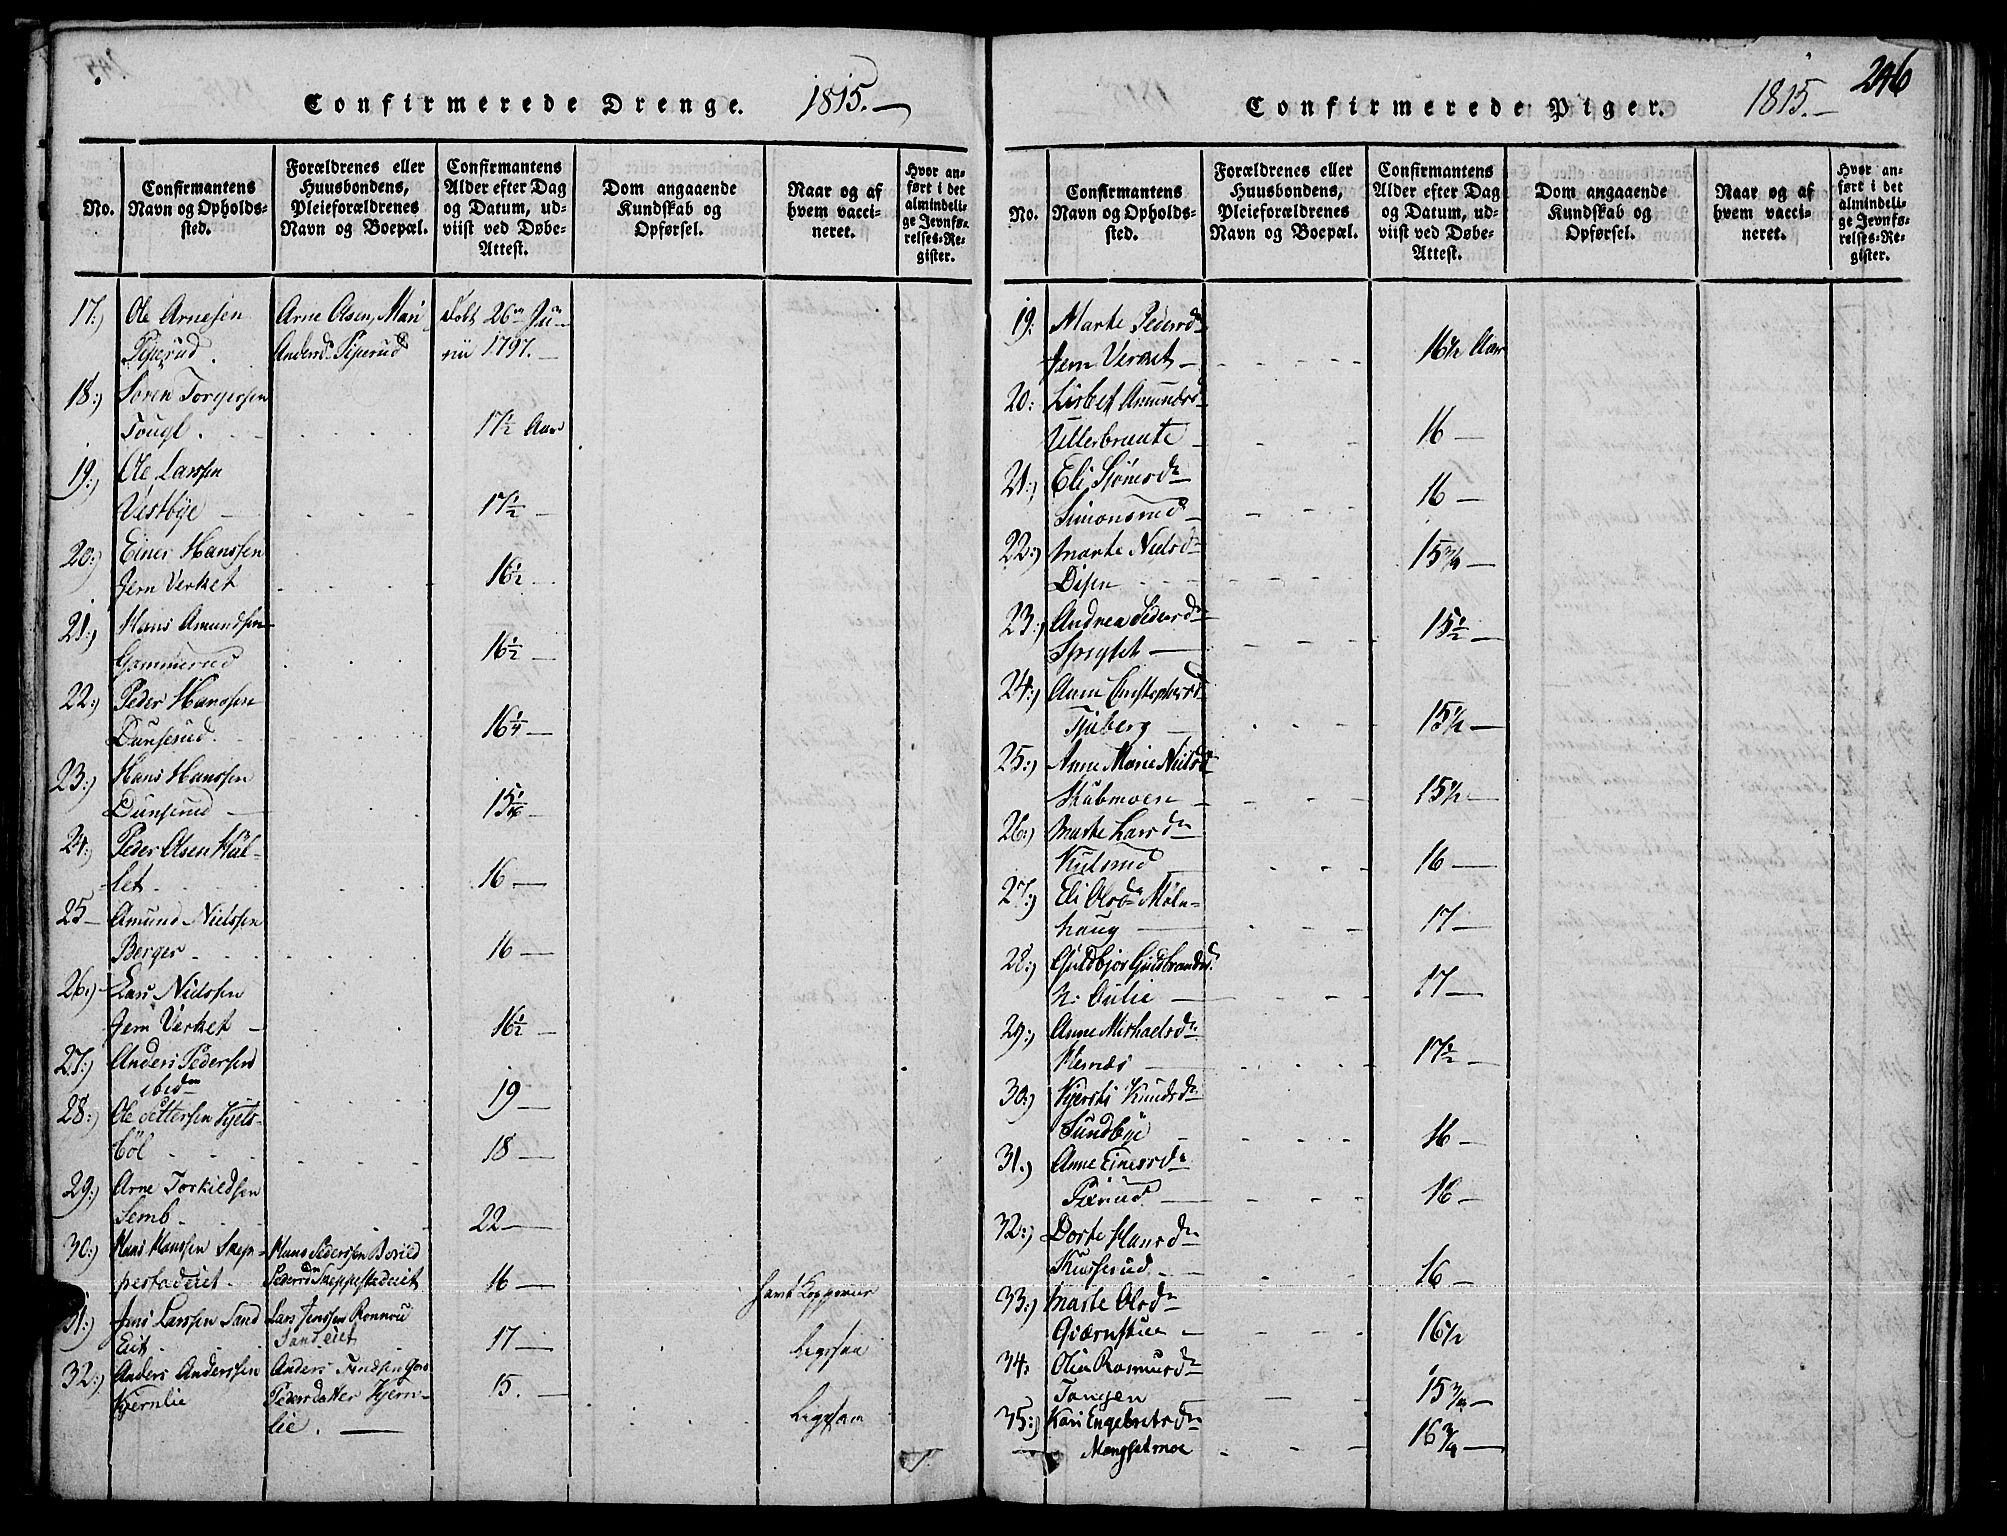 Confirmerede Drenge. 1815.
No.
Confirmantens Navn og Opholdssted.
Forældrenes eller Huusbondens, Pleieforældrenes Navn og Boepæl.
Confirmantens Alder efter Dag og Datum, udviist ved Døbe-Attest.
Dom angaaende Kundskab og Opførsel.
Naar og af hvem vaccineret.
Hvor anført i det almindelige Jevnførelses-Register.
17.) Ole Arnesen Arne Olsen, Mari født 26de Ju-
Piperud. Andersd. Piperud nii 1797.
18:) Soren Torgersen
17½ Aar
19:) Ole Larssen
Vestbye 17½
20:) Einer Hanssen
Jern Verket 16½
21:) Hans Amundsen
Gammerud 16½
22:) Peder Hanssen
Dunserud. 16¼
23:) Hans Hanssen
Dunserud
24:) Peder Olsen
let. 16
25 Amund Nielssen
Berger 16
26.) Lars Nielssen
Jern Verket 16½
27:) Anders Pedersen
ibidm 19
28:) Ole Pettersen Kjels-
böl 18
29:) Arne Torkildsen
Semb 22
30:) Hans Hanssen Skep- Hans Pederssen Borild
pestadeiet. Pedersdn Skeppestadeiet 16 havt Kopperne
31:) Jens Larssen Sand Lars Jenssen Ronnou
Eit. Sandeiet 17 Ligesaa
32:) Anders Anderssen Anders
Kjernlie Pedersdatter Kjern- 15. Ligesaa
lie.
246
Confirmerede Piger. 1815.
No.
Confirmantens Navn og Opholdssted.
Forældrenes eller Huusbondens, Pleieforældrenes Navn og Boepæl.
Confirmantens Alder efter Dag og Datum, udviist ved Døbe-Attest.
Dom angaaende Kundskab og Opførsel.
Naar og af hvem vaccineret.
Hvor anført i det almindelige Jevnførelses-Register.
19: Marte Pedersdr
Jern Verket 16½ Aar
20: Lisbet Amundsd
Ullerbraate 16
21:) Eli Sjönesdr 16
Simonsrud
22:) Marte Nielsdr 15¾
Disen
23:) Andrea Pedersdr 15½
Spigset
24:) Anne Christophersd
Tjuberg 15½
25:) Anne Marie Nielsd
Skubmoen 15½
26:) Marte Larsdr
16
27:) Eli Olsdr Möln-
haug 17
28:) Guldbjor Guldbrandsd.
N: Aulie 17
29:) Anne Michaelsdr
Hernæs 17½
30:) Kjersti Knudsdr
Sundbye 16
31.) Anne Einersdr
16
32:) Dorte Hansdr
Kusserud 16
33:) Marte Olsdr
Giærnstue 16½
34: Olia Rasmusdr
Tangen 15¾
35:) Kari Engebretsdr 16¾
Mangsetmoe